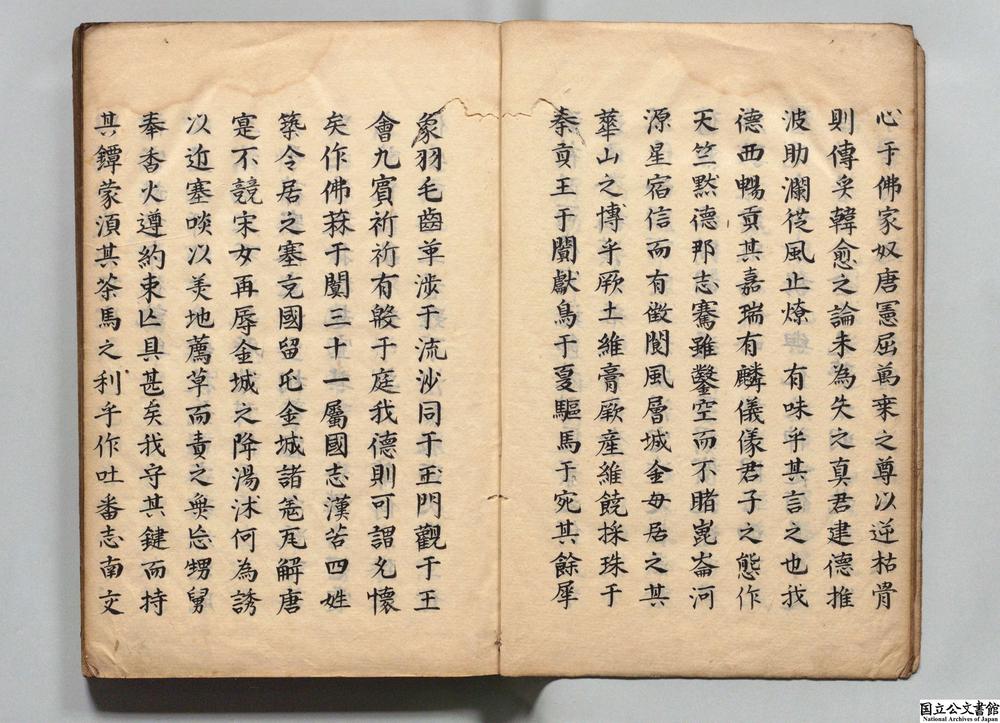 心于佛家奴唐憲屈萬乗之尊以逆枯骨
則傅奕韓愈之論未為失之真君建德推
波助瀾從風止燎有味乎其言之也我
德西暢貢其嘉瑞有麟儀儀君子之態作
天竺默德那志騫雖鑿空而不睹崑崙河
源星宿信而有徵閬風層城金母居之其
華山之博乎厥土維膏厥産維饒採珠于
秦貢玉于闐獻鳥于夏驅馬于宛其餘犀
象羽毛齒革涉于流沙同于玉門觀于王
會九賓祈祈有般于庭我德則可謂允懷
矣作佛菻于闐三十一屬國志漢苦四姓
築令居之塞充國留屯金城諸羌瓦解唐
寔不競宋女再辱金城之降湯沐何為誘
以近塞啖以美地薦草而責之無忘甥舅
奉香火遵約束亡具甚矣我守其鍵而持
其鐔蒙湏其茶馬之利乎作吐番志南交
国立公文書館
National Archives of Japan